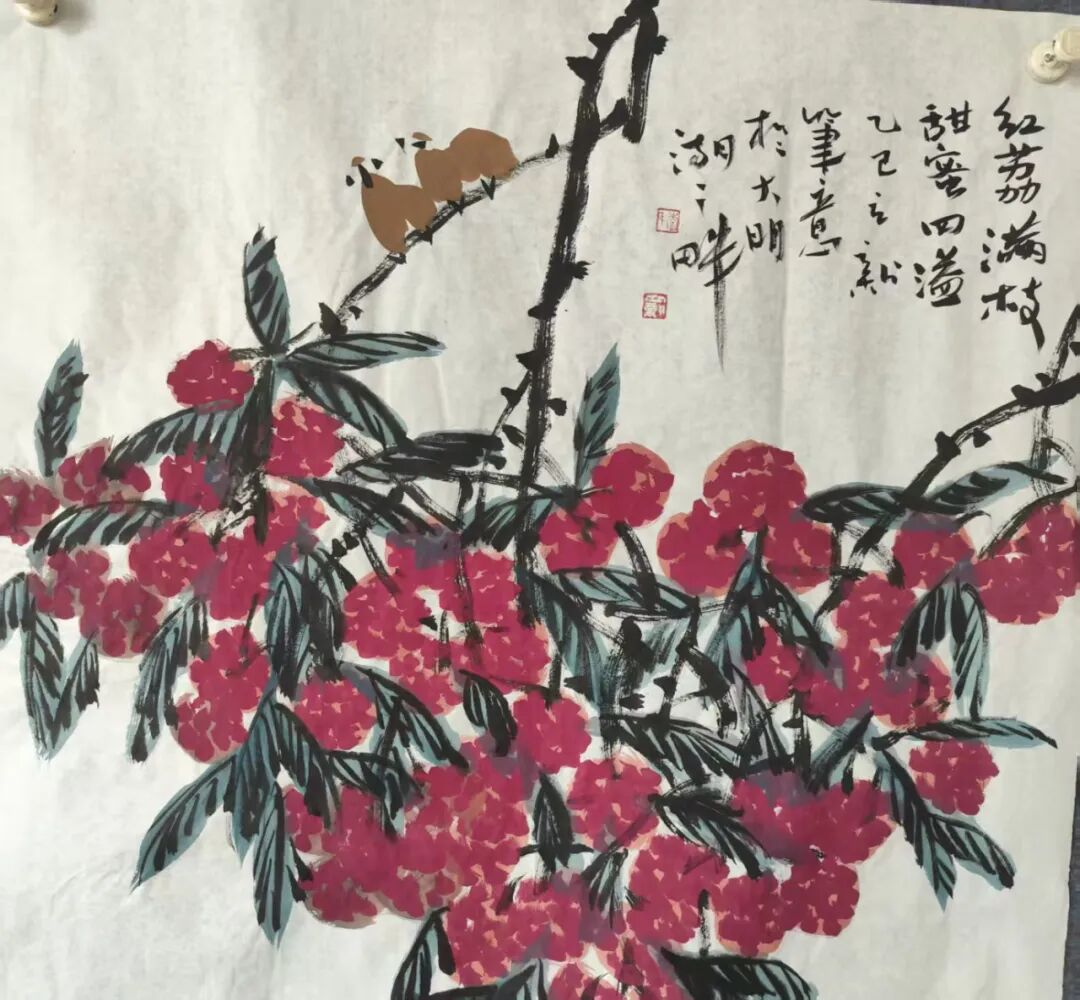 红荔满枝
甜蜜四溢
乙巳立新
筆意
於大明
湖之畔